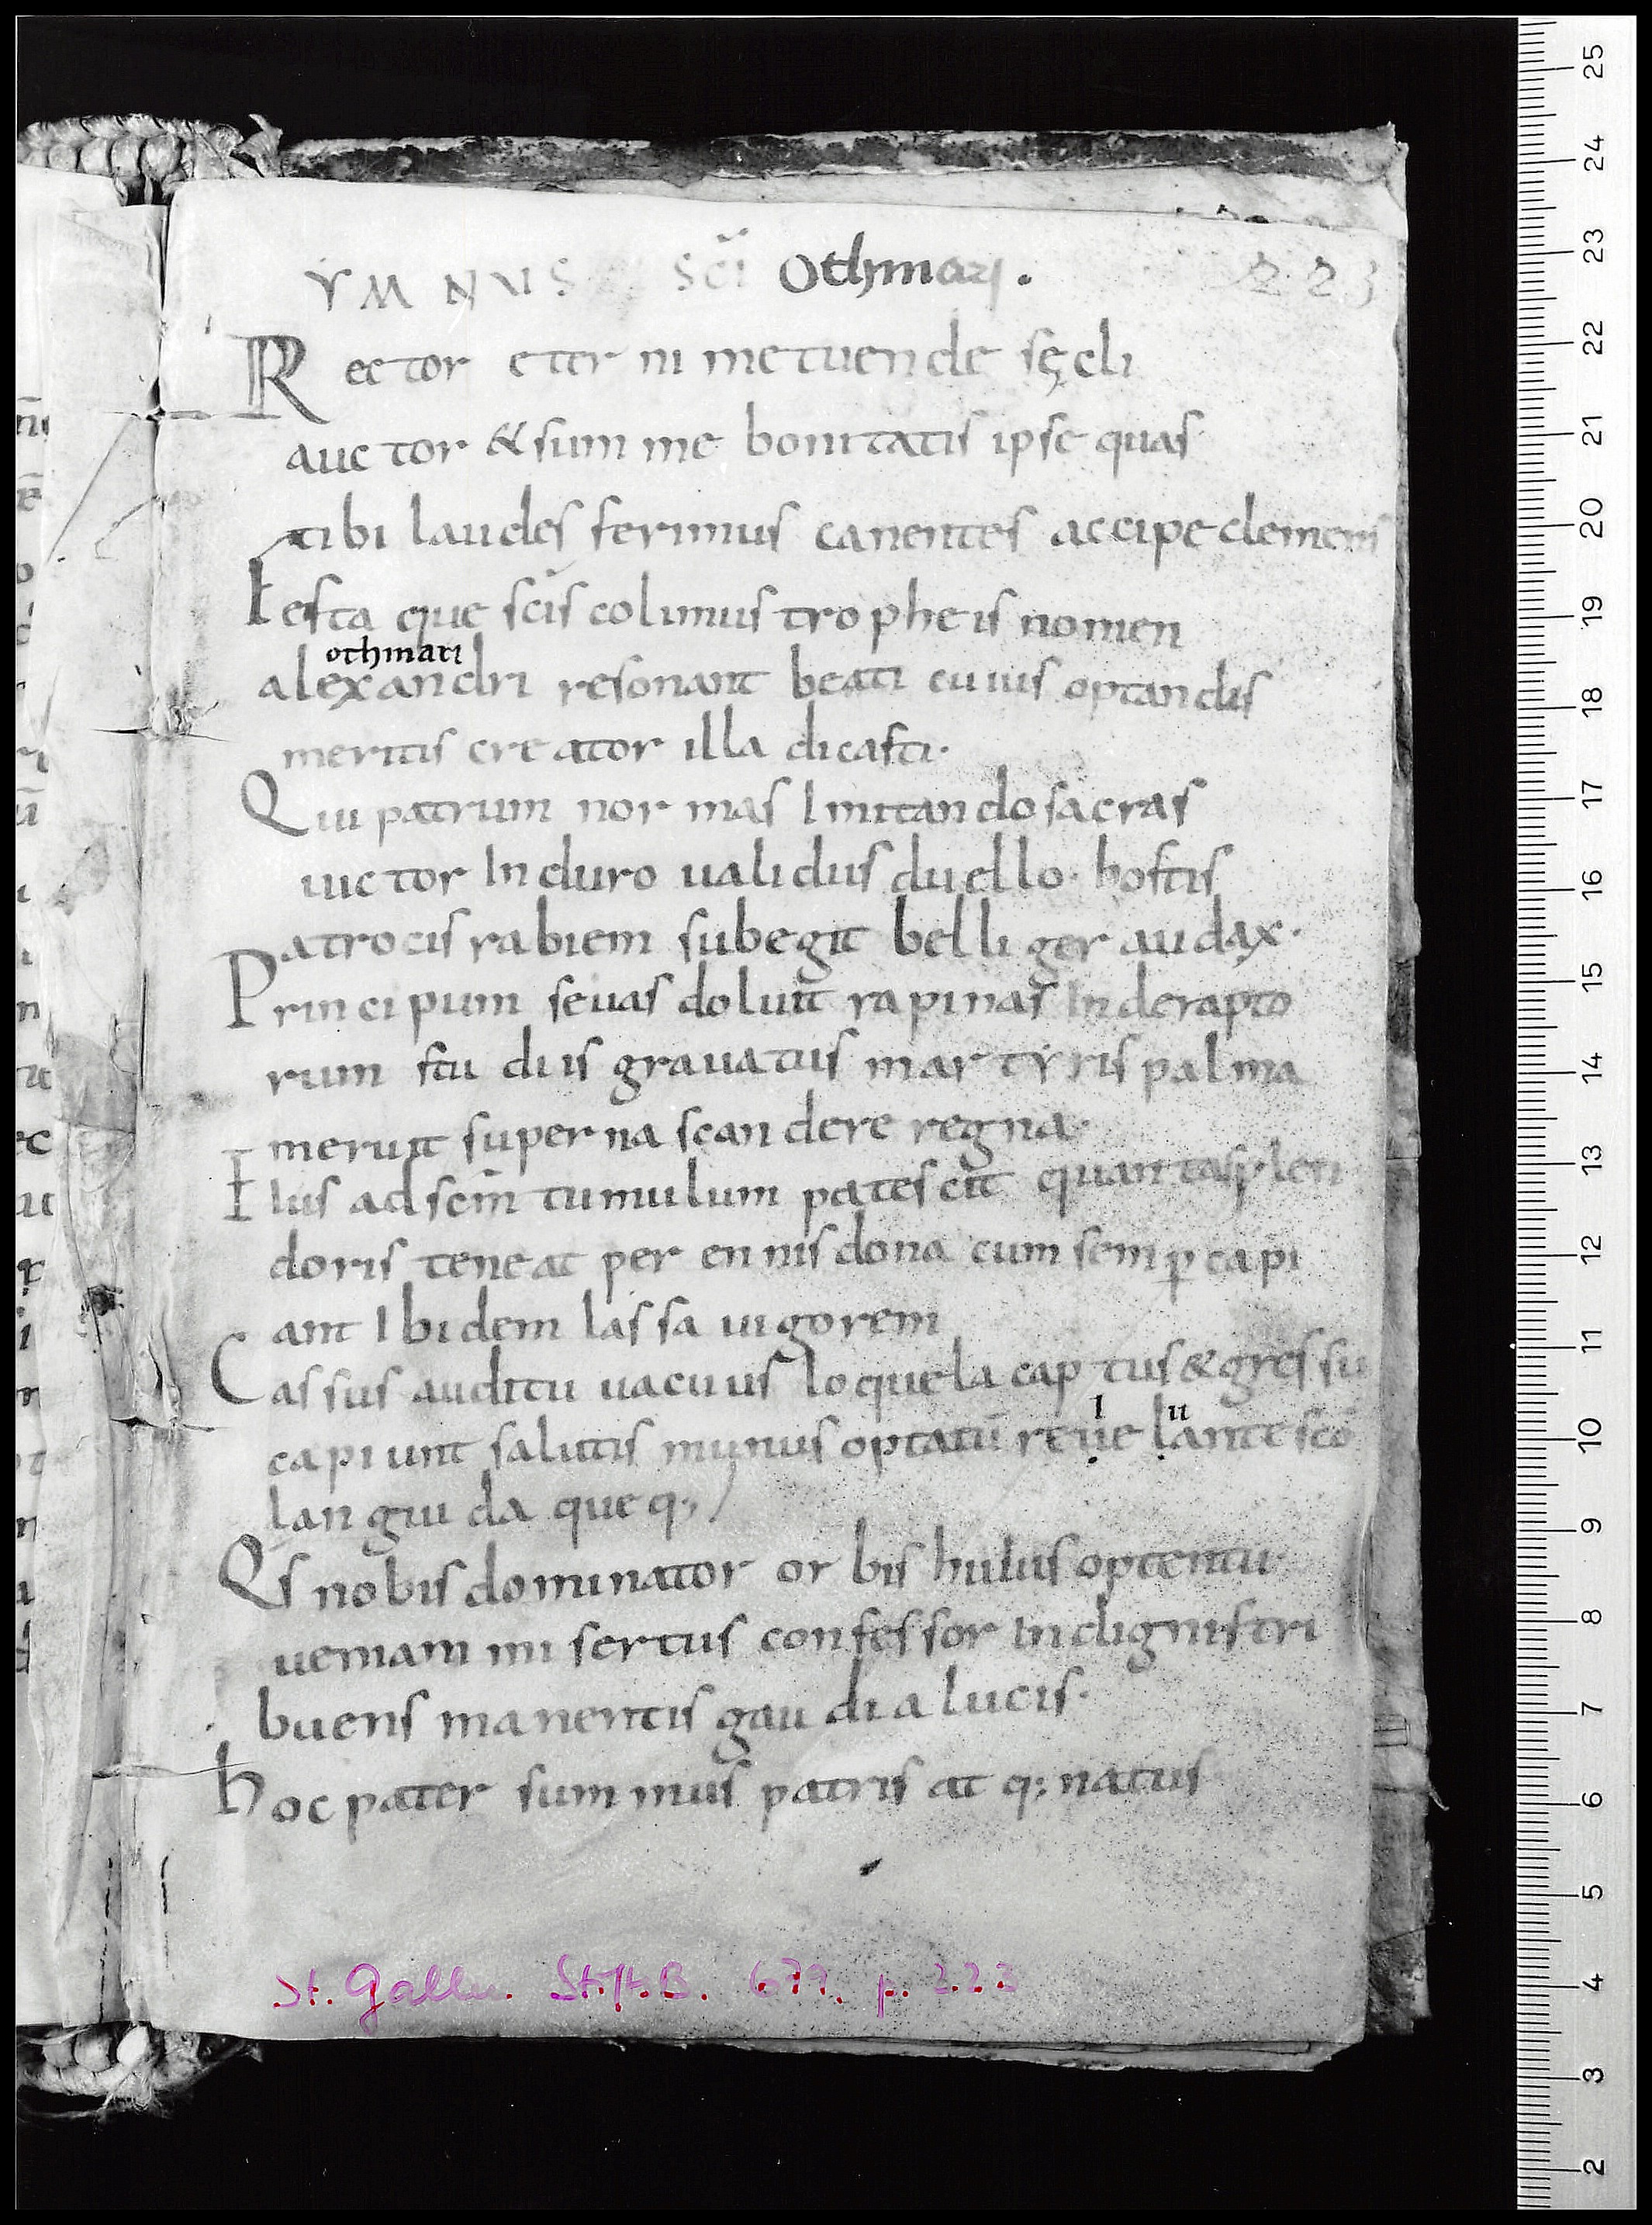 YMNUS SCĪ Othmari.
223
Rector eterni metuende sęcli
auctor & summe bonitatis ipse quas
tibi laudes ferimus canentes accipe clemens
Festa que sc̄is colimus tropheis nomen
othmari
alexandri resonant beati cuius optandis
meritis creator illa dicasti·
Qui patrum normas Imitando sacras
uictor In duro ualidus duello· hostis
atrocis rabiem subegit belliger audax·
Principum seuas doluit rapinas Inde rapto
rum studiis grauatus martyris palma
meruit superna scandere regna·
Eius ad sc̄m tumulum patescit quanta splen
doris teneat perennis dona cum semꝑ capi
ant Ibidem lassa uigorem
Cassus auditu uacuus loquela captus & gressu
I u
capiunt salutis munus optatū reuelant sc̄o
languida queq;
Qs nobis dominator orbis huius optentu
ueniam misertus confessor Indignis tri
buens manentis gaudia lucis·
hoc pater summus patris atq; natus
St. Gallen. Stift.B. 679. p. 223
25
24
23
22
21
20
19
18
17
16
15
14
13
12
11
10
9
8
7
6
5
4
3
2